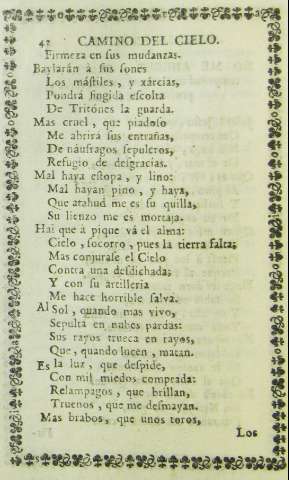 42 CAMINO DEL CIELO.
Firmeza en sus mudanzas.
Baylarán à sus sones
Los mástiles, y xárcias,
Pondrá fingida escolta
De Tritónes la guarda.
Mas cruel, que piadoso
Me abrirá sus entrañas,
De náufragos sepulcros,
Refugio de desgracias.
Mal haya estopa, y lino:
Mal hayan pino, y haya,
Que atahud me es su quilla,
Su lienzo me es mortaja.
Hai que à pique vá el alma:
Cielo, socorro, pues la tierra falta;
Mas conjurase el Cielo
Contra una desdichada;
Y con su artilleria
Me hace horrible salva.
Al Sol, quando mas vivo,
Sepulta en nubes pardas:
Sus rayos trueca en rayos,
Que, quando lucen, matan.
Es la luz, que despide,
Con mil miedos comprada:
Relampagos, que brillan,
Truenos, que me desmayan.
Mas brabos, que unos toros,
Los